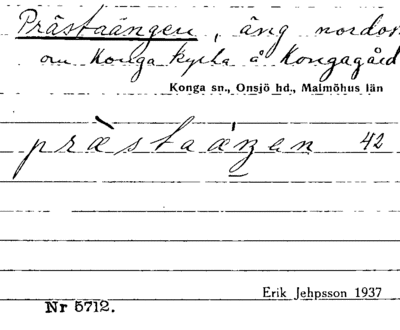 Prästaängen, äng nordost
om Konga kyrka å Kongagård
Konga sn., Onsjö hd., Malmöhus län
præ̀staǽŋen 42
Erik Jehpsson 1937
Nr 5712.